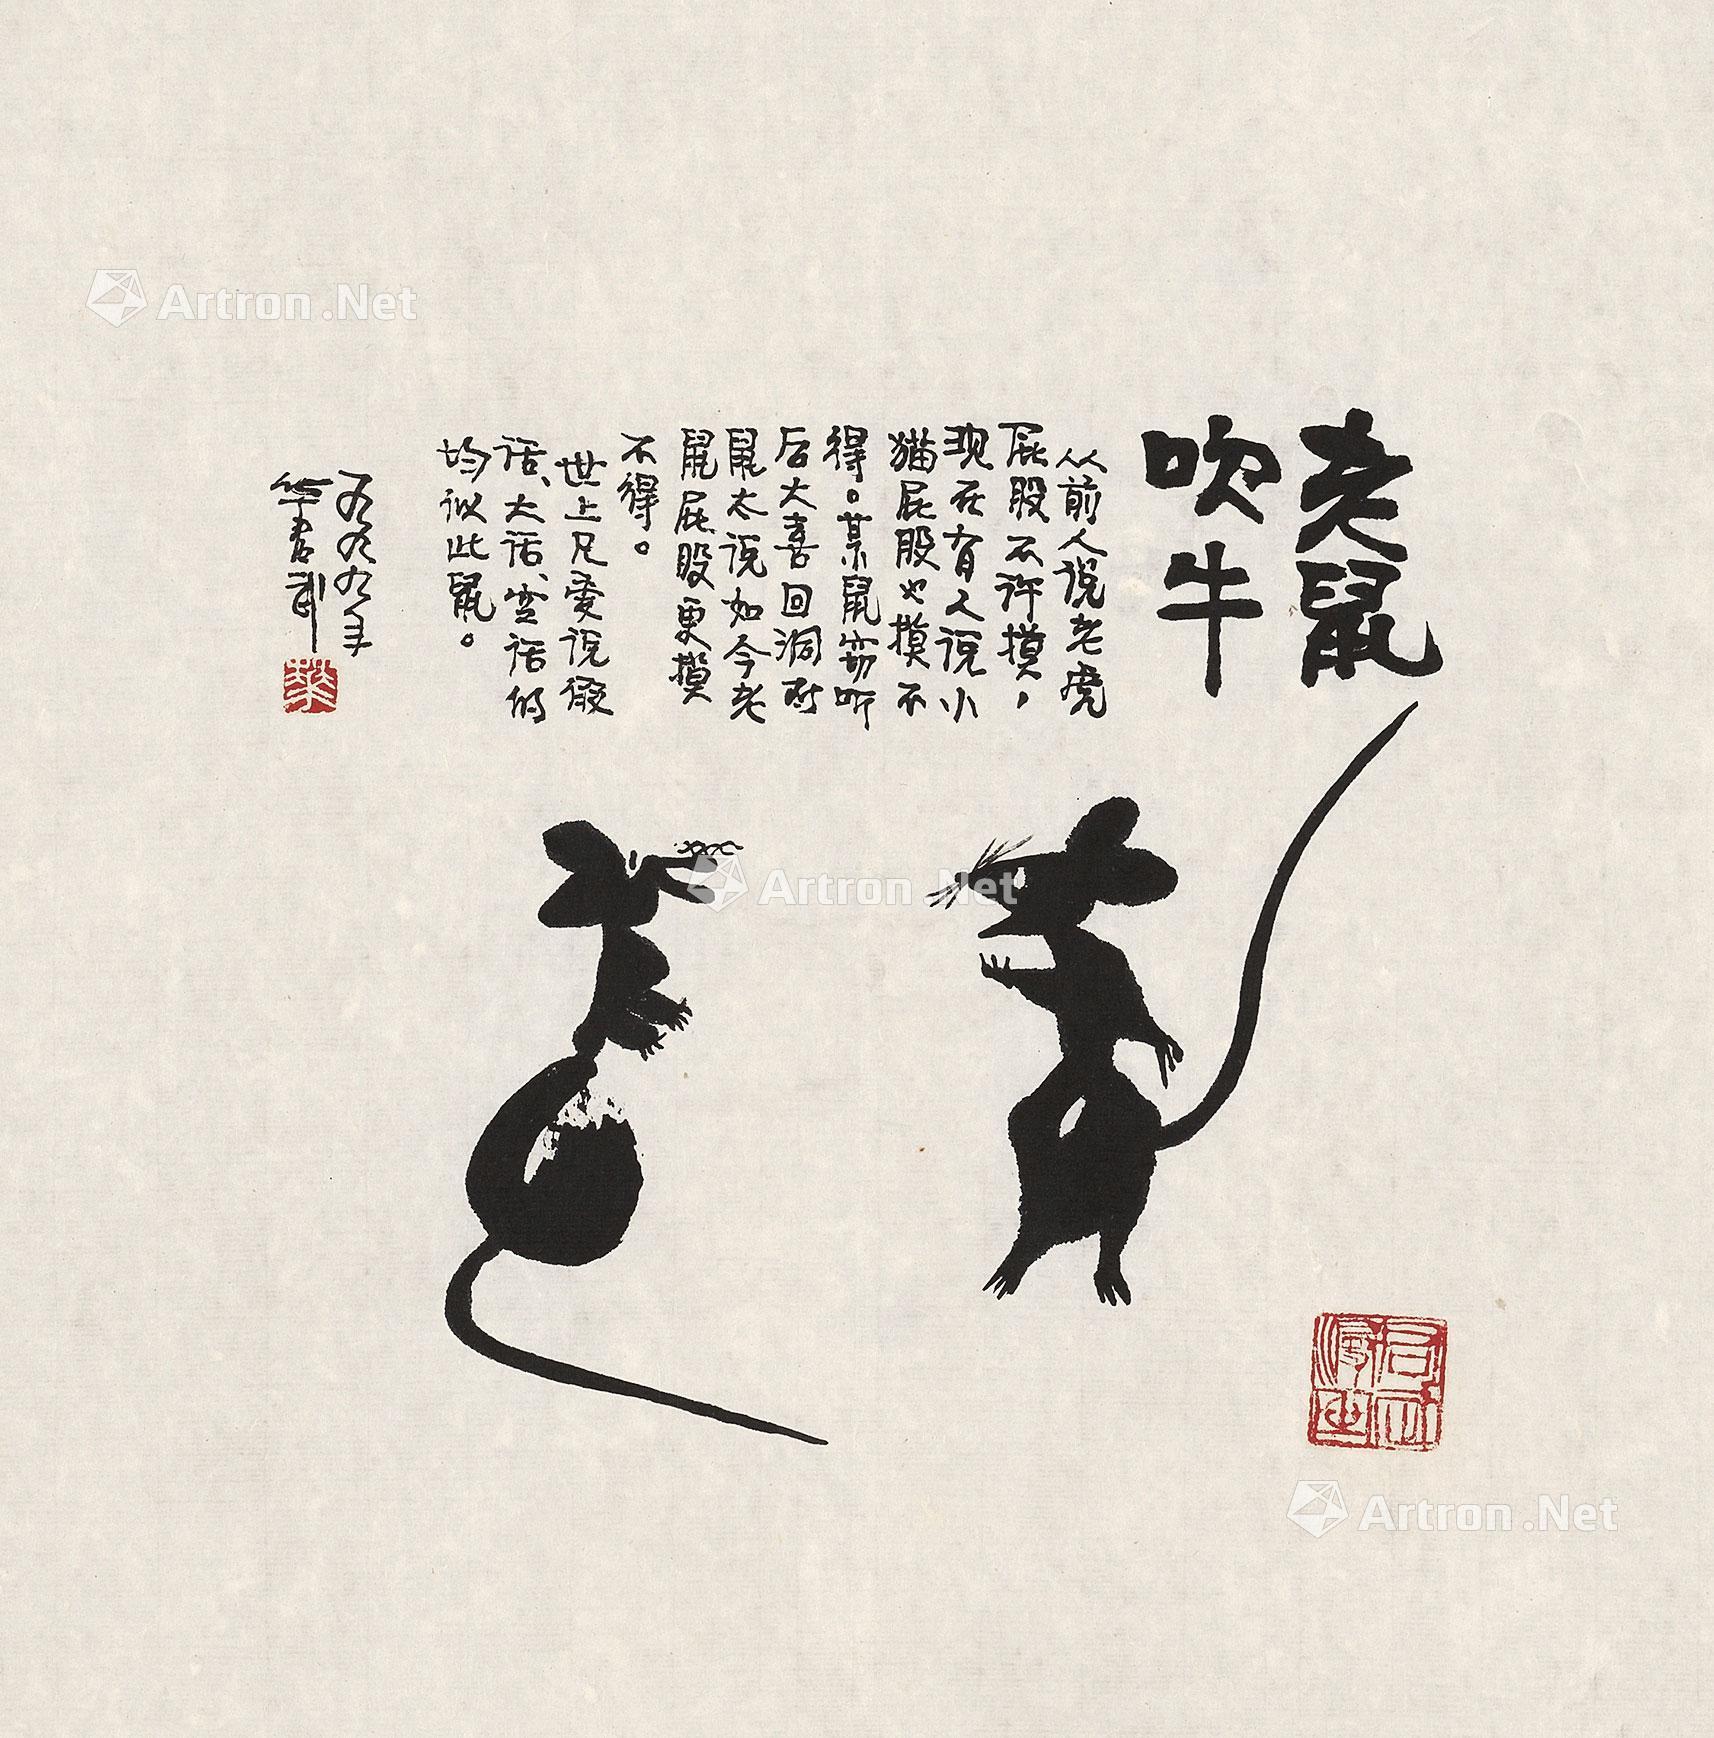 老鼠
吹牛
从前人说老虎
屁股不许摸，
现在有人说小
猫屁股也摸不
得。某鼠窃听
后大喜回洞对
鼠太说如今老
鼠屁股更摸
不得。
世上凡爱说假
话、大话、空话的
均似此鼠。
一九九九年
华君武
华
君武
漫画
Artron.Net
Artron.Net
Artron.Net